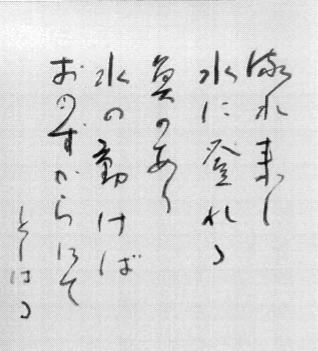 流れ来し
水に登れる
魚のあり
水の動けば
おのずからにて
としはる